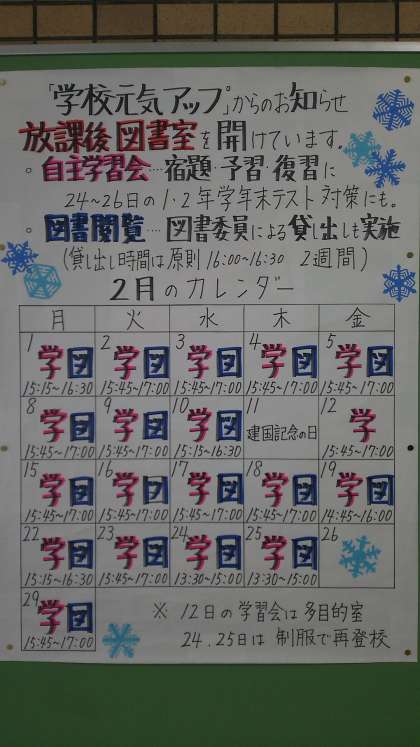 「学校元気アップ」からのお知らせ
放課後図書室を開けています。
○自主学習会…宿題・予習・復習に
24~26日の1・2年学年末テスト対策にも。
○図書閲覧…図書委員による貸し出しも実施
(貸し出し時間は原則16:00~16:30 2週間)
2月のカレンダー
月 火 水 木 金
1 2 3 4 5
学図 学図 学図 学図 学図
15:15~16:30 15:45~17:00 15:45~17:00 15:45~17:00 15:45~17:00
8 9 10 11 12
学図 学図 学図 建国記念の日 学
15:45~17:00 15:45~17:00 15:15~16:30 15:45~17:00
15 16 17 18 19
学図 学図 学図 学図 学図
15:45~17:00 15:45~17:00 15:45~17:00 15:45~17:00 14:45~16:00
22 23 24 25 26
学図 学図 学図 学図
15:15~16:30 15:45~17:00 13:30~15:00 13:30~15:00
29
学図
15:45~17:00
※ 12日の学習会は多目的室
24.25日は制服で再登校